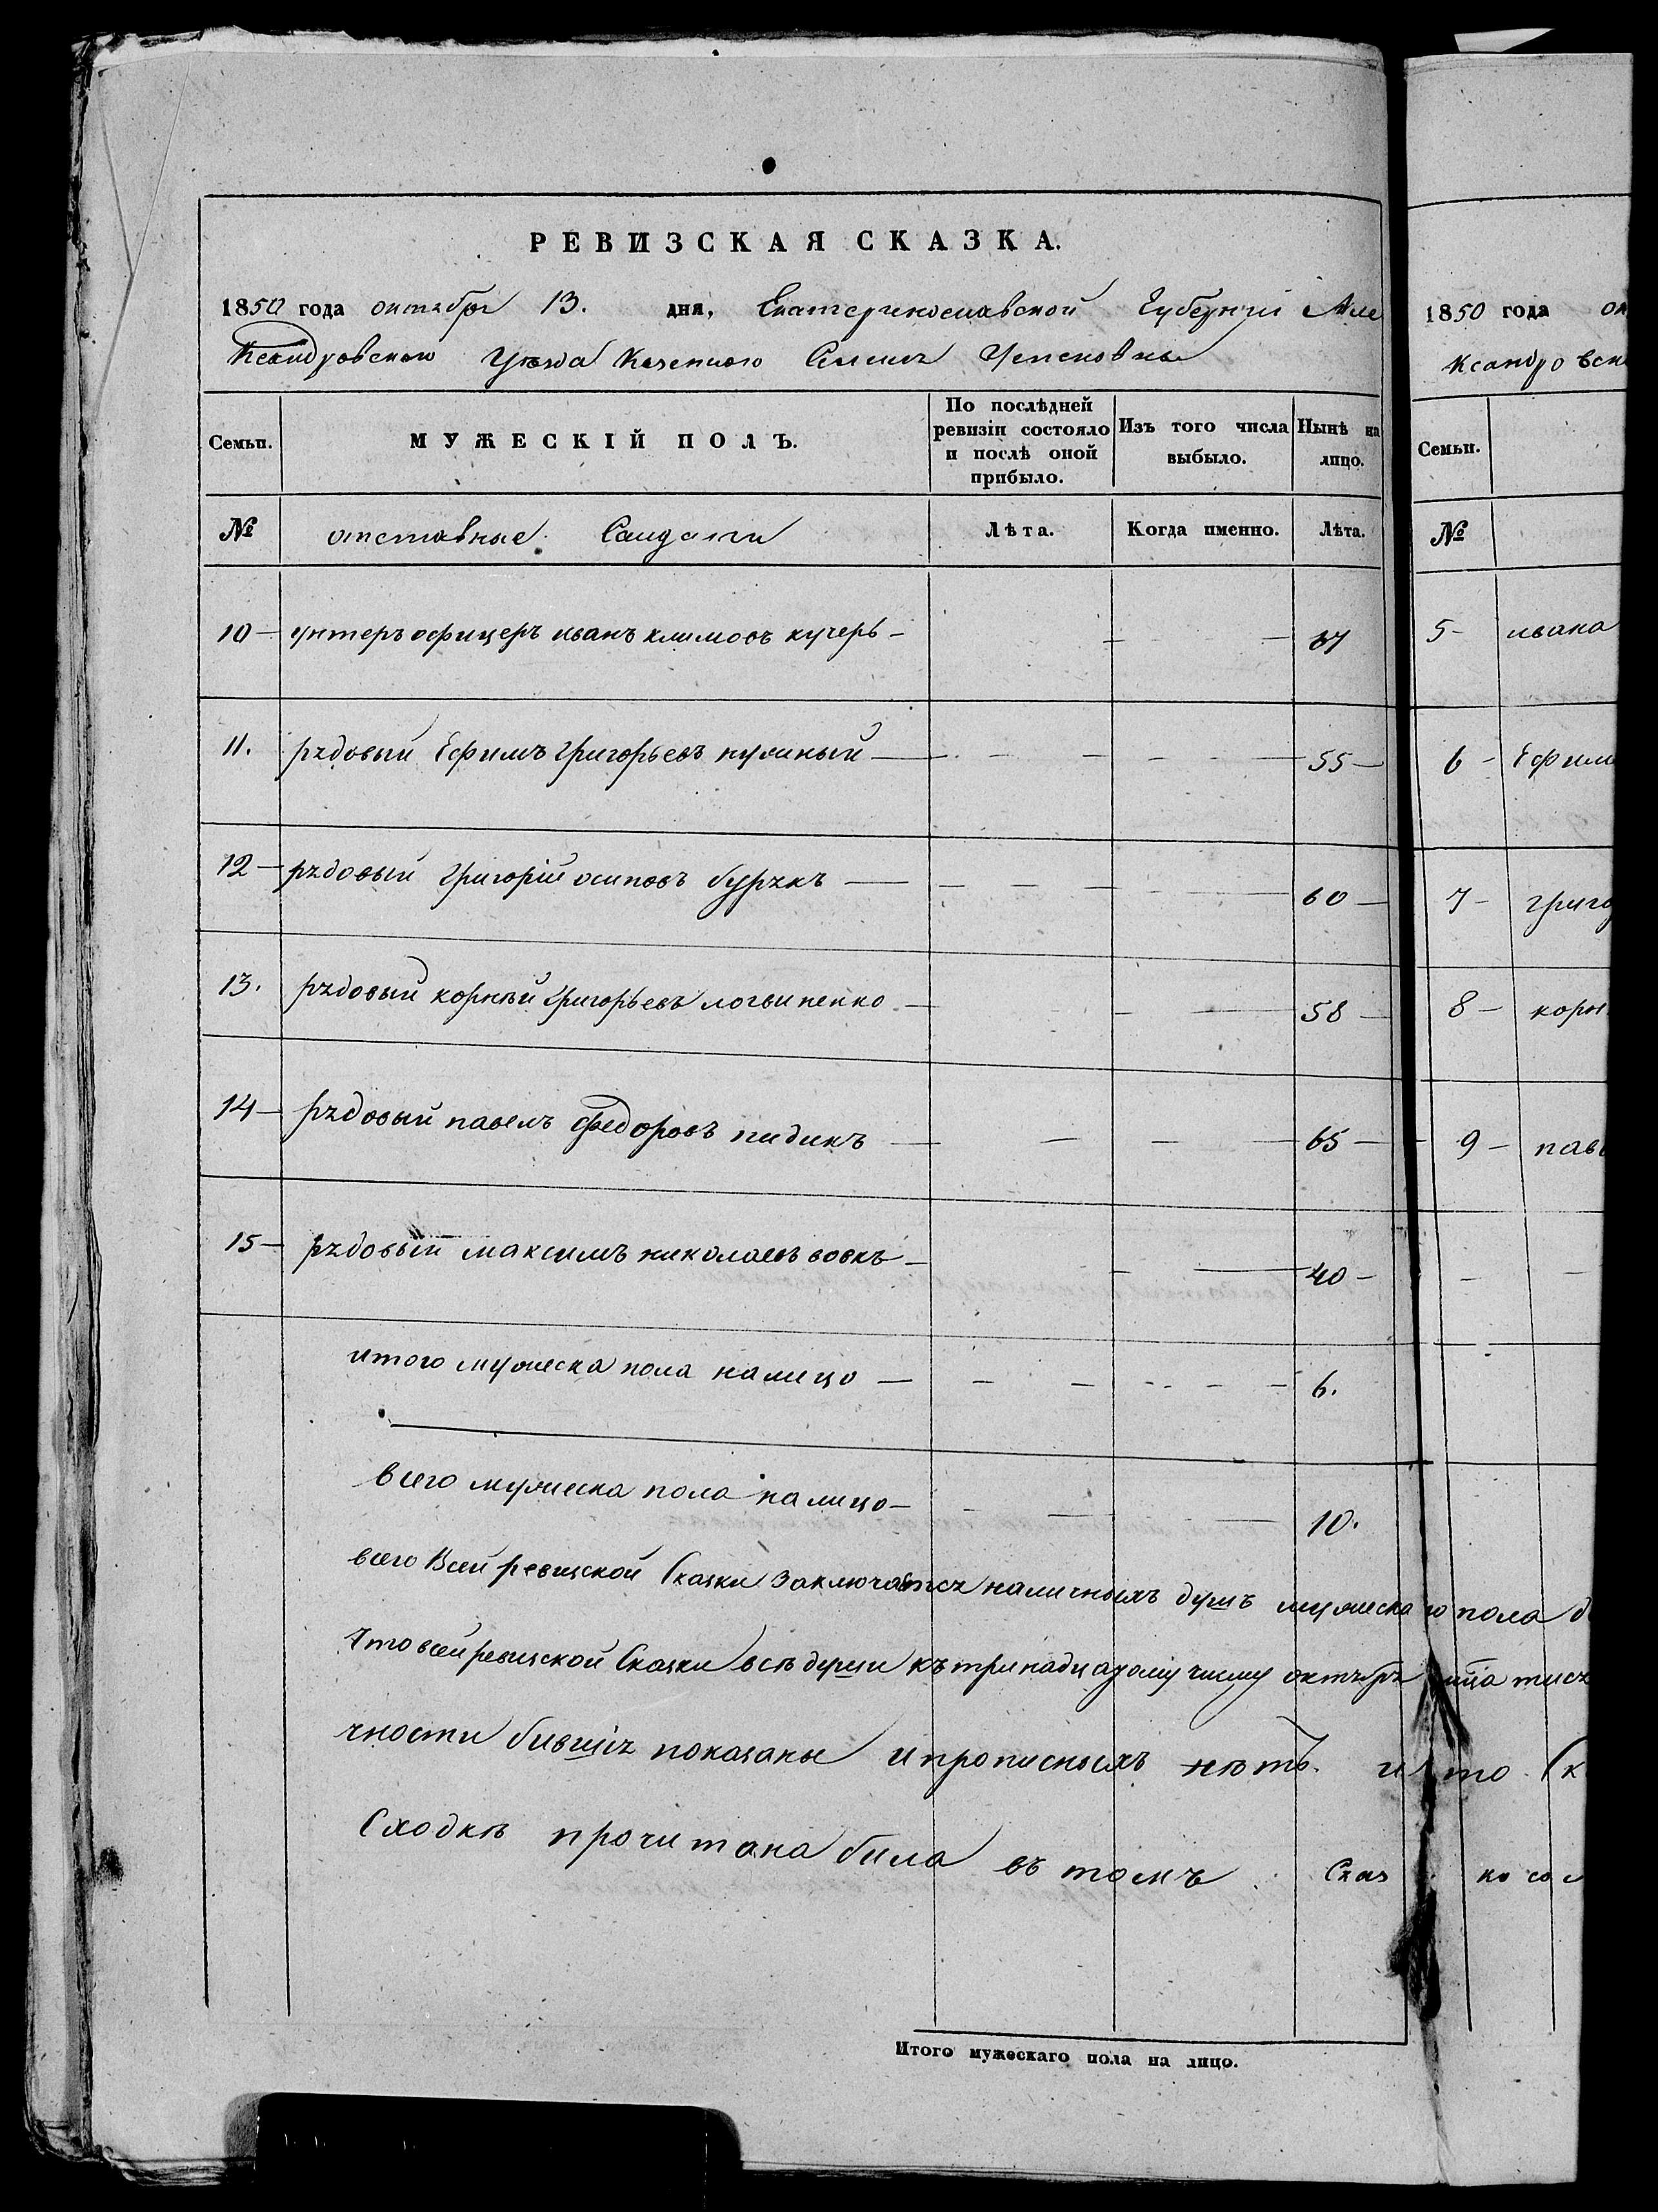 РЕВИЗСКАЯ СКАЗКА.
1850 года октября 13. дня, Екатеринославской Губерніи Але
ксандровскаго Уѣзда Казенного Селенія Успеновки
Семьи. МУЖЕСКІЙ ПОЛЪ. По послѣдней ревизіи состояло и послѣ оной прибыло. Изъ того числа выбыло. Ныпѣ на лицо.
№ отставные Салдаты Лѣта. Когда именно. Лѣта.
10 — унтеръ офицеръ иванъ климовъ кучерь — 67
11. рядовый Ефимъ Григорьевъ нужный — 55 —
12 — рядовый Григорій осиповъ бурякъ — 60 —
13. рядовый корнѣй Григорьевъ логвиненко — 58 —
14 — рядовый павелъ Федоровъ пидикъ — 65 —
15 — рядовый максимъ николаевъ вовкъ — 40 —
итого мужеска пола налицо — 6.
всего мужеска пола налицо — 10.
всего Всей ревизской Сказки заключается наличныхъ душъ мужеска го пола д
Что всей ревизской Сказки всѣ души къ тринадцатому числу октября мца тися
чности бившія показаны и прописныхъ нѣтъ. и то Ск
Сходкѣ прочитана била въ томъ
Итого мужескаго пола на лицо.
1850 года ок
ксандровск
Семьи.
№
5 — ивана
6 — Ефим
7 — григо
8 — корн
9 — пав